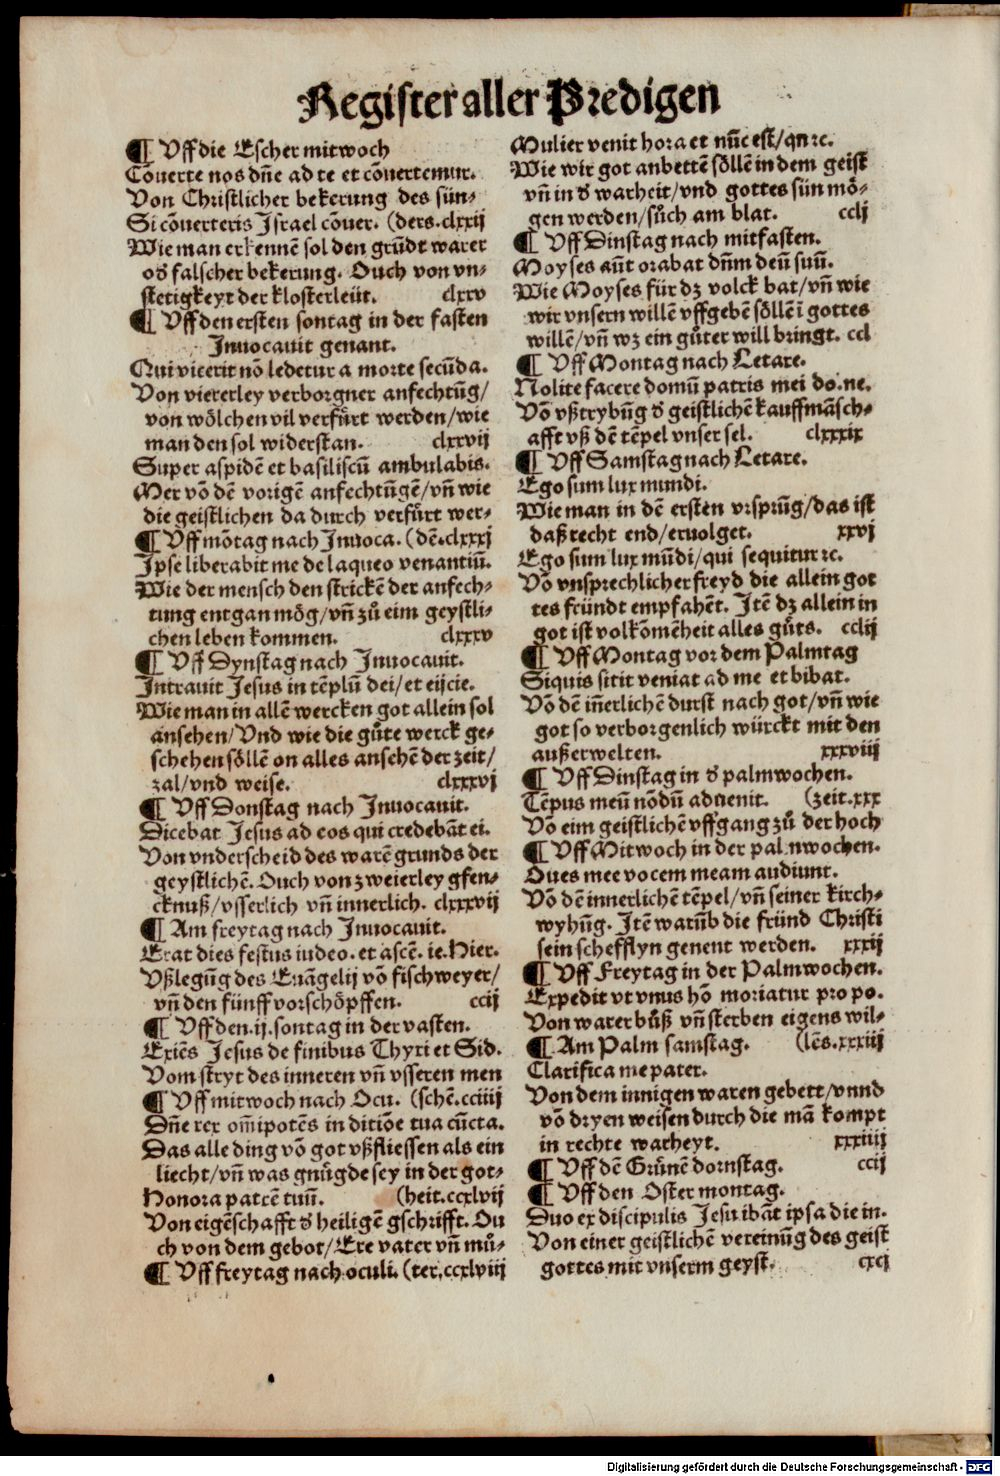 Register aller Predigen
¶ Uff die Escher mitwoch
Cōuerte nos dn̄e ad te et cōuertemur.
Von Christlicher bekerung des sün-
Si cōuerteris Israel cōuer. (ders. clxxij
Wie man erkennē sol den grūdt warer
oď falscher bekerung. Ouch von vn-
stetigkeyt der klosterleüt. clxxv
¶ Uff den ersten sontag in der fasten
Inuocauit genant.
Qui vicerit nō ledetur a morte secūda.
Von viererley verborgner anfechtūg/
von wölchen vil verfürt werden/wie
man den sol widerstan. clxxvij
Super aspidē et basiliscū ambulabis.
Mer vō dē vorigē anfechtūgē/vn̄ wie
die geistlichen da durch verfürt wer-
¶ Uff mōtag nach Inuoca. (dē. clxxxj
Ipse liberabit me de laqueo venantiū.
Wie der mensch den strickē der anfech-
tung entgan mög/vn̄ zů eim geystli-
chen leben kommen. clxxxv
¶ Uff Dynstag nach Inuocauit.
Intrauit Jesus in tēplū dei/et eijcie.
Wie man in allē wercken got allein sol
ansehen/Und wie die gůte werck ge-
schehen söllē on alles ansehē der zeit/
zal/vnd weise. clxxxvj
¶ Uff Donstag nach Inuocauit.
Dicebat Jesus ad eos qui credebāt ei.
Von vnderscheid des warē grunds der
geystlichē. Ouch von zweierley gfen-
cknuß/vsserlich vn̄ innerlich. clxxxvij
¶ Am freytag nach Inuocauit.
Erat dies festus iudeo. et ascē. ie. Hier.
Ußlegūg des Euāgelij vō fischweyer/
vn̄ den fünff vorschöpffen. ccij
¶ Uff den .ij. sontag in der vasten.
Exiēs Jesus de finibus Thyri et Sid.
Vom stryt des inneren vn̄ vsseren men
¶ Uff mitwoch nach Ocu. (schē. cciiij
Dn̄e rex om̄ipotēs in ditiōe tua cūcta.
Das alle ding vō got vßfliessen als ein
liecht/vn̄ was gnůgde sey in der got-
Honora patrē tuū. (heit. ccxlvij
Von eigēschafft ď heiligē gschrifft. Ou
ch von dem gebot/Ere vater vn̄ mů-
¶ Uff freytag nach oculi. (ter. ccxlviij
Mulier venit hora et nūc est/qn̄ ⁊c.
Wie wir got anbettē söllē in dem geist
vn̄ in ď warheit/vnd gottes sün mö-
gen werden/sůch am blat. cclj
¶ Uff Dinstag nach mitfasten.
Moyses aūt orabat dn̄m deū suū.
Wie Moyses für dz volck bat/vn̄ wie
wir vnsern willē vffgebē söllē ī gottes
willē/vn̄ wz ein gůter will bringt. ccl
¶ Uff Montag nach Letare.
Nolite facere domū patris mei do. ne.
Vō vßtrybūg ď geistlichē kauffmāsch-
afft vß dē tēpel vnser sel. clxxxix
¶ Uff Samstag nach Letare.
Ego sum lux mundi.
Wie man in dē ersten vrsprūg/das ist
daß recht end/eruolget. xxvj
Ego sum lux mūdi/qui sequitur ⁊c.
Vō vnsprechlicher freyd die allein got
tes fründt empfahēt. Itē dz allein in
got ist volkōmēheit alles gůts. cclij
¶ Uff Montag vor dem Palmtag
Siquis sitit veniat ad me et bibat.
Vō dē iñerlichē durst nach got/vn̄ wie
got so verborgenlich würckt mit den
außerwelten. xxxviij
¶ Uff Dinstag in ď palmwochen.
Tēpus meū nōdū aduenit. (zeit. xxx
Vō eim geistlichē vffgang zů der hoch
¶ Uff Mitwoch in der palmwochen.
Oues mee vocem meam audiunt.
Vō dē innerlichē tēpel/vn̄ seiner kirch-
wyhūg. Itē warūb die fründ Christi
sein schefflyn genent werden. xxxij
¶ Uff Freytag in der Palmwochen.
Expedit vt vnus hō moriatur pro po.
Von warer bůß vn̄ sterben eigens wil-
¶ Am Palm samstag. (lēs. xxxiij
Clarifica me pater.
Von dem innigen waren gebett/vnnd
vō dryen weisen durch die mā kompt
in rechte warheyt. xxxiiij
¶ Uff dē Grůnē dornstag. ccij
¶ Uff den Oster montag.
Duo ex discipulis Jesu ibāt ipsa die in.
Von einer geistlichē vereinūg des geist
gottes mit vnserm geyst. cxcj
Digitalisierung gefördert durch die Deutsche Forschungsgemeinschaft - DFG